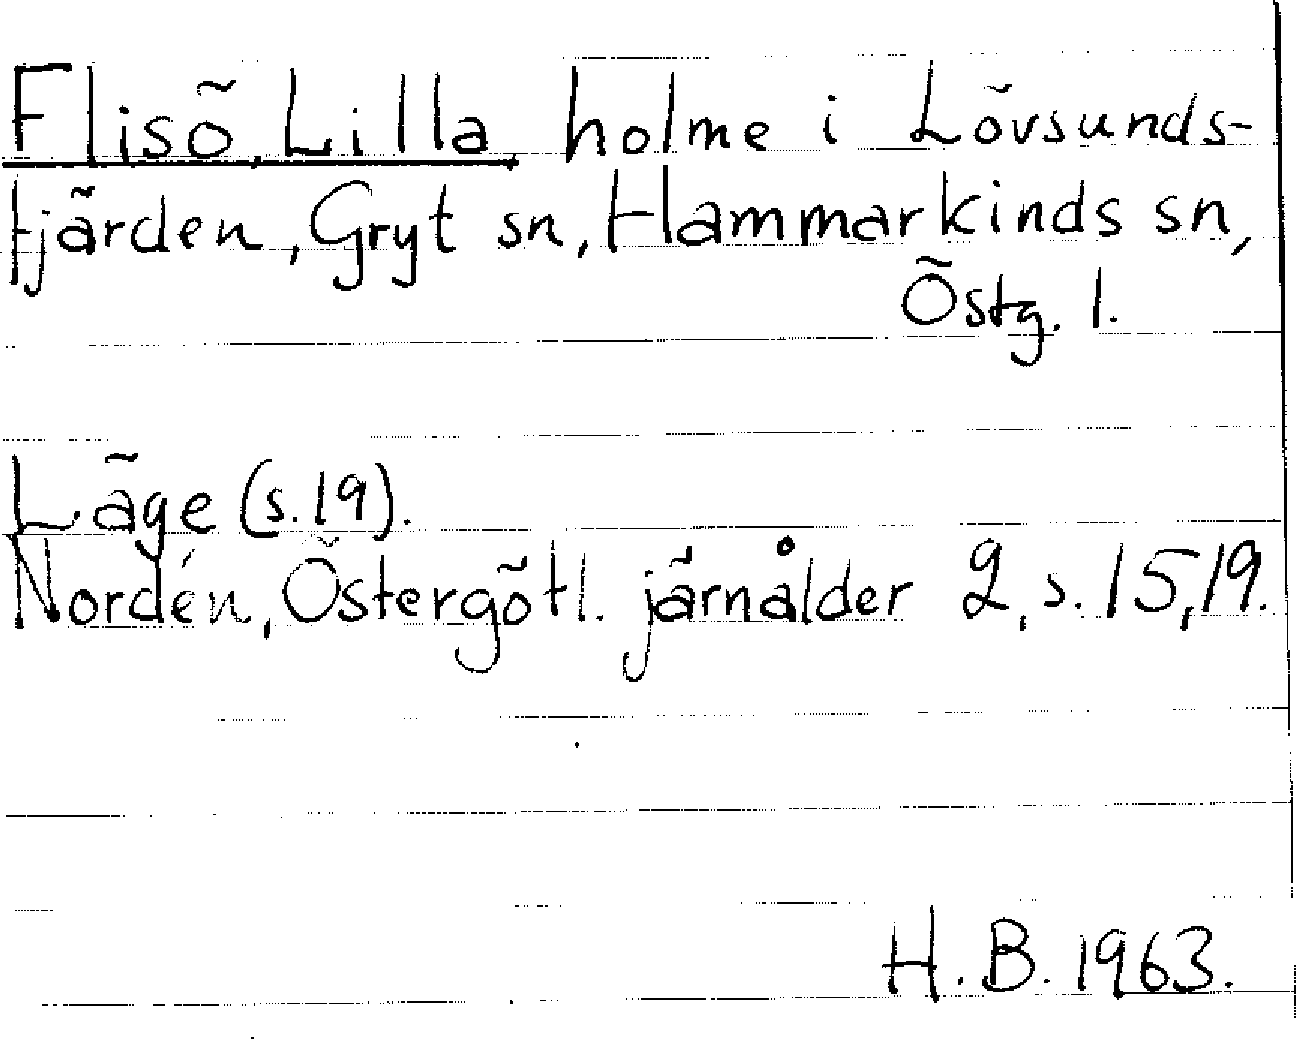 Flisö, Lilla, holme i Lövsunds-
fjärden, Gryt sn, Hammarkinds sn,
Östg. l.
Läge (s. 19).
Nordén, Östergötl. järnålder 2, s. 15, 19.
H. B. 1963.